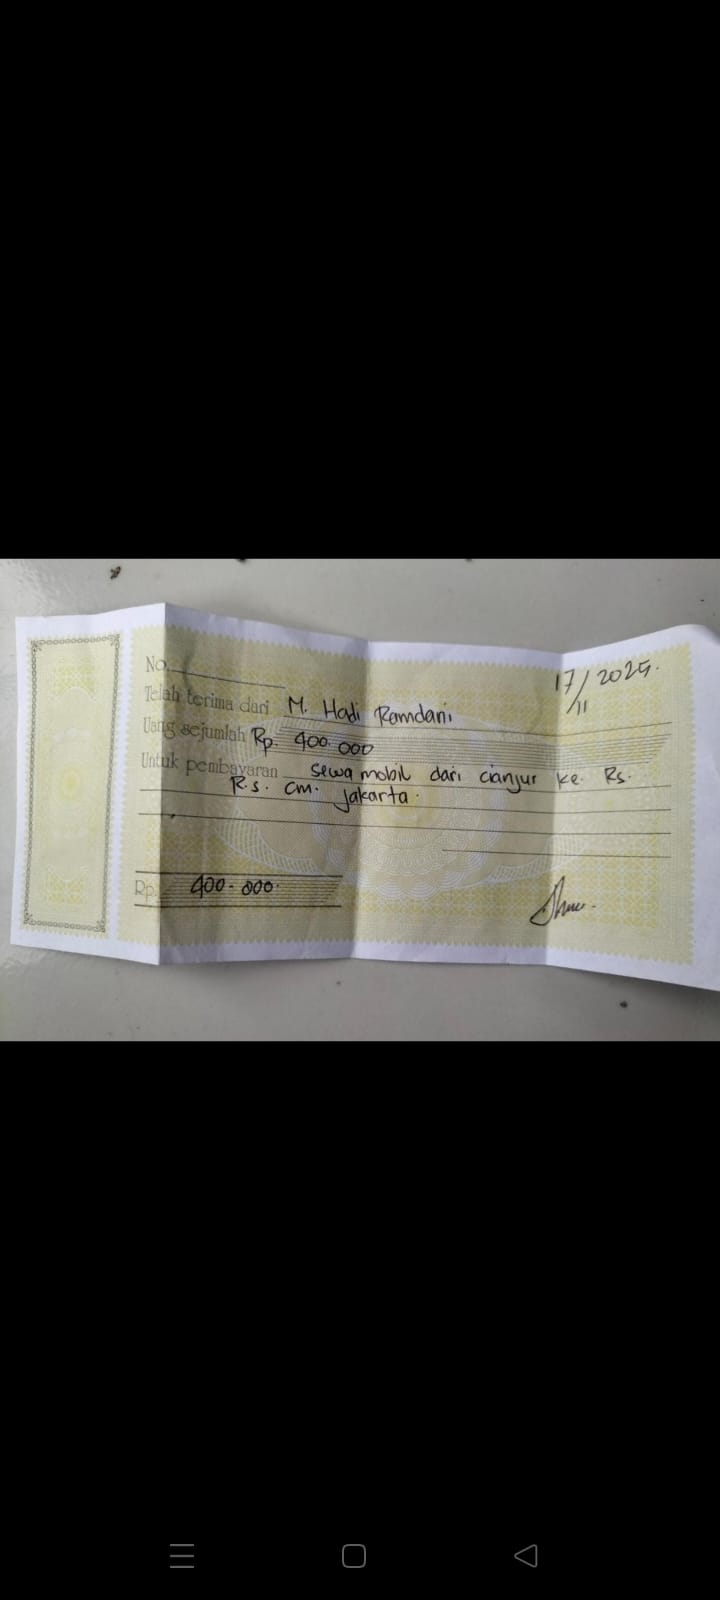 No.
17/11 2025.
Telah terima dari M. Hadi Ramdani
Uang sejumlah Rp. 400.000
Untuk pembayaran sewa mobil dari cianjur ke. Rs.
R.s. cm. jakarta.
Rp. 400.000.